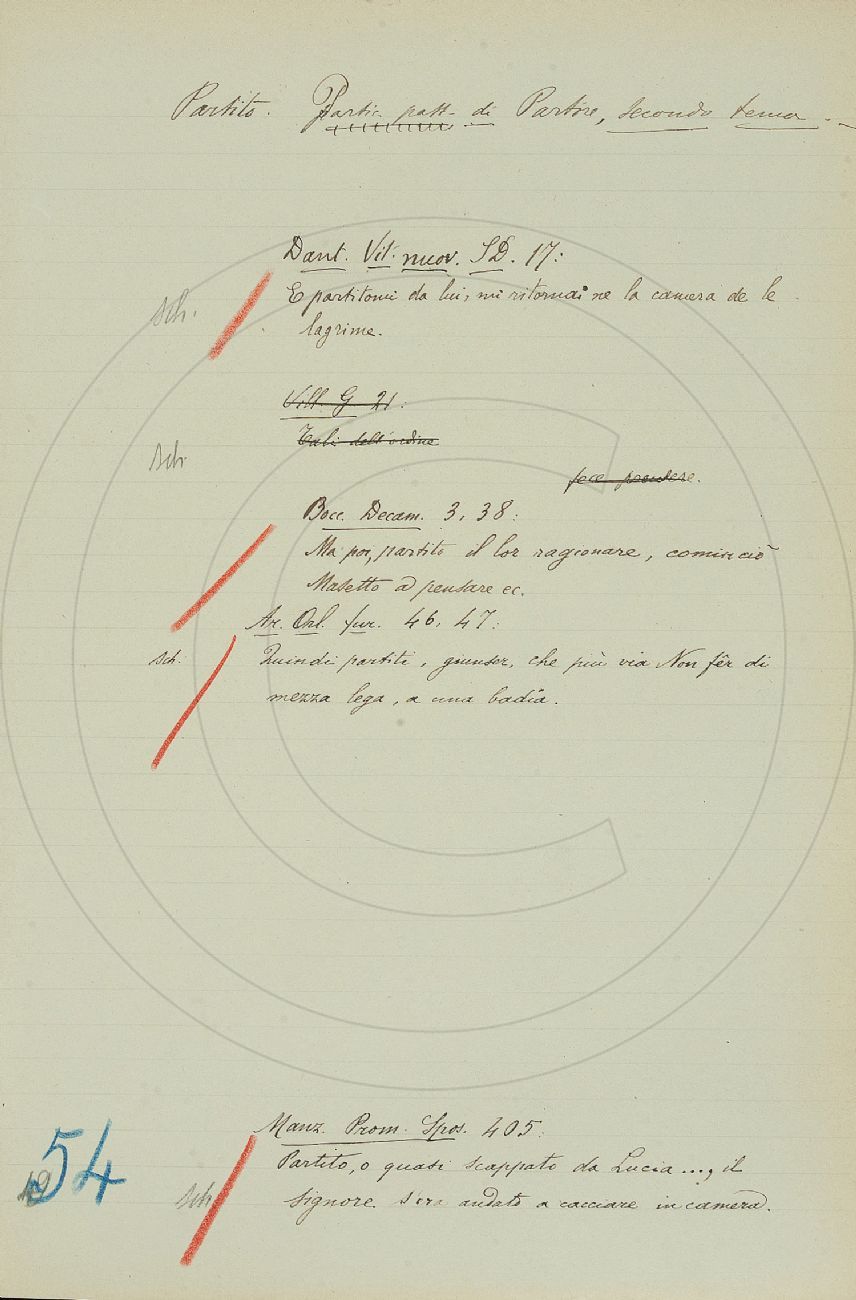 Partito. Partic. pass. di Partire, secondo tema.
Dant. Vit. nuov. SD. 17:
Sch.
E partitomi da lui, mi ritornai ne la camera de le
lagrime.
Vill. G. 21:
Tali dell'ordine
Sch.
fece prendere.
Bocc. Decam. 3, 38:
Ma poi, partito il lor ragionare, cominciò
Masetto a pensare ec.
Ar. Orl. fur. 46, 47:
Sch.
Quindi partiti, giunser, che più via Non fêr di
mezza lega, a una badia.
Manz. Prom. Spos. 405:
Partito, o quasi scappato da Lucia..., il
Sch.
signore s'era andato a cacciare in camera.
54